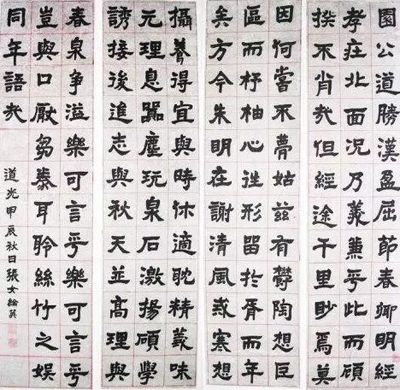 園公道勝漢盈屈節春卿明經
孝莊北面況乃義蕙乎此而顧
揆不肖哉但經途千里眇焉莫
因何當不夢姑茲有鬱陶想巨
區而杼柚心往形留於焉而年
矣方今朱明在謝清風戒寒想
攝養得宜與時休適耽精義味
元理息囂塵玩泉石激揚碩學
誘接後進志與秋天並高理與
春泉爭溢樂可言乎樂可言乎
豈與口厭芻豢耳聆絲竹之娛
同年語哉
道光甲辰秋日張女綸英